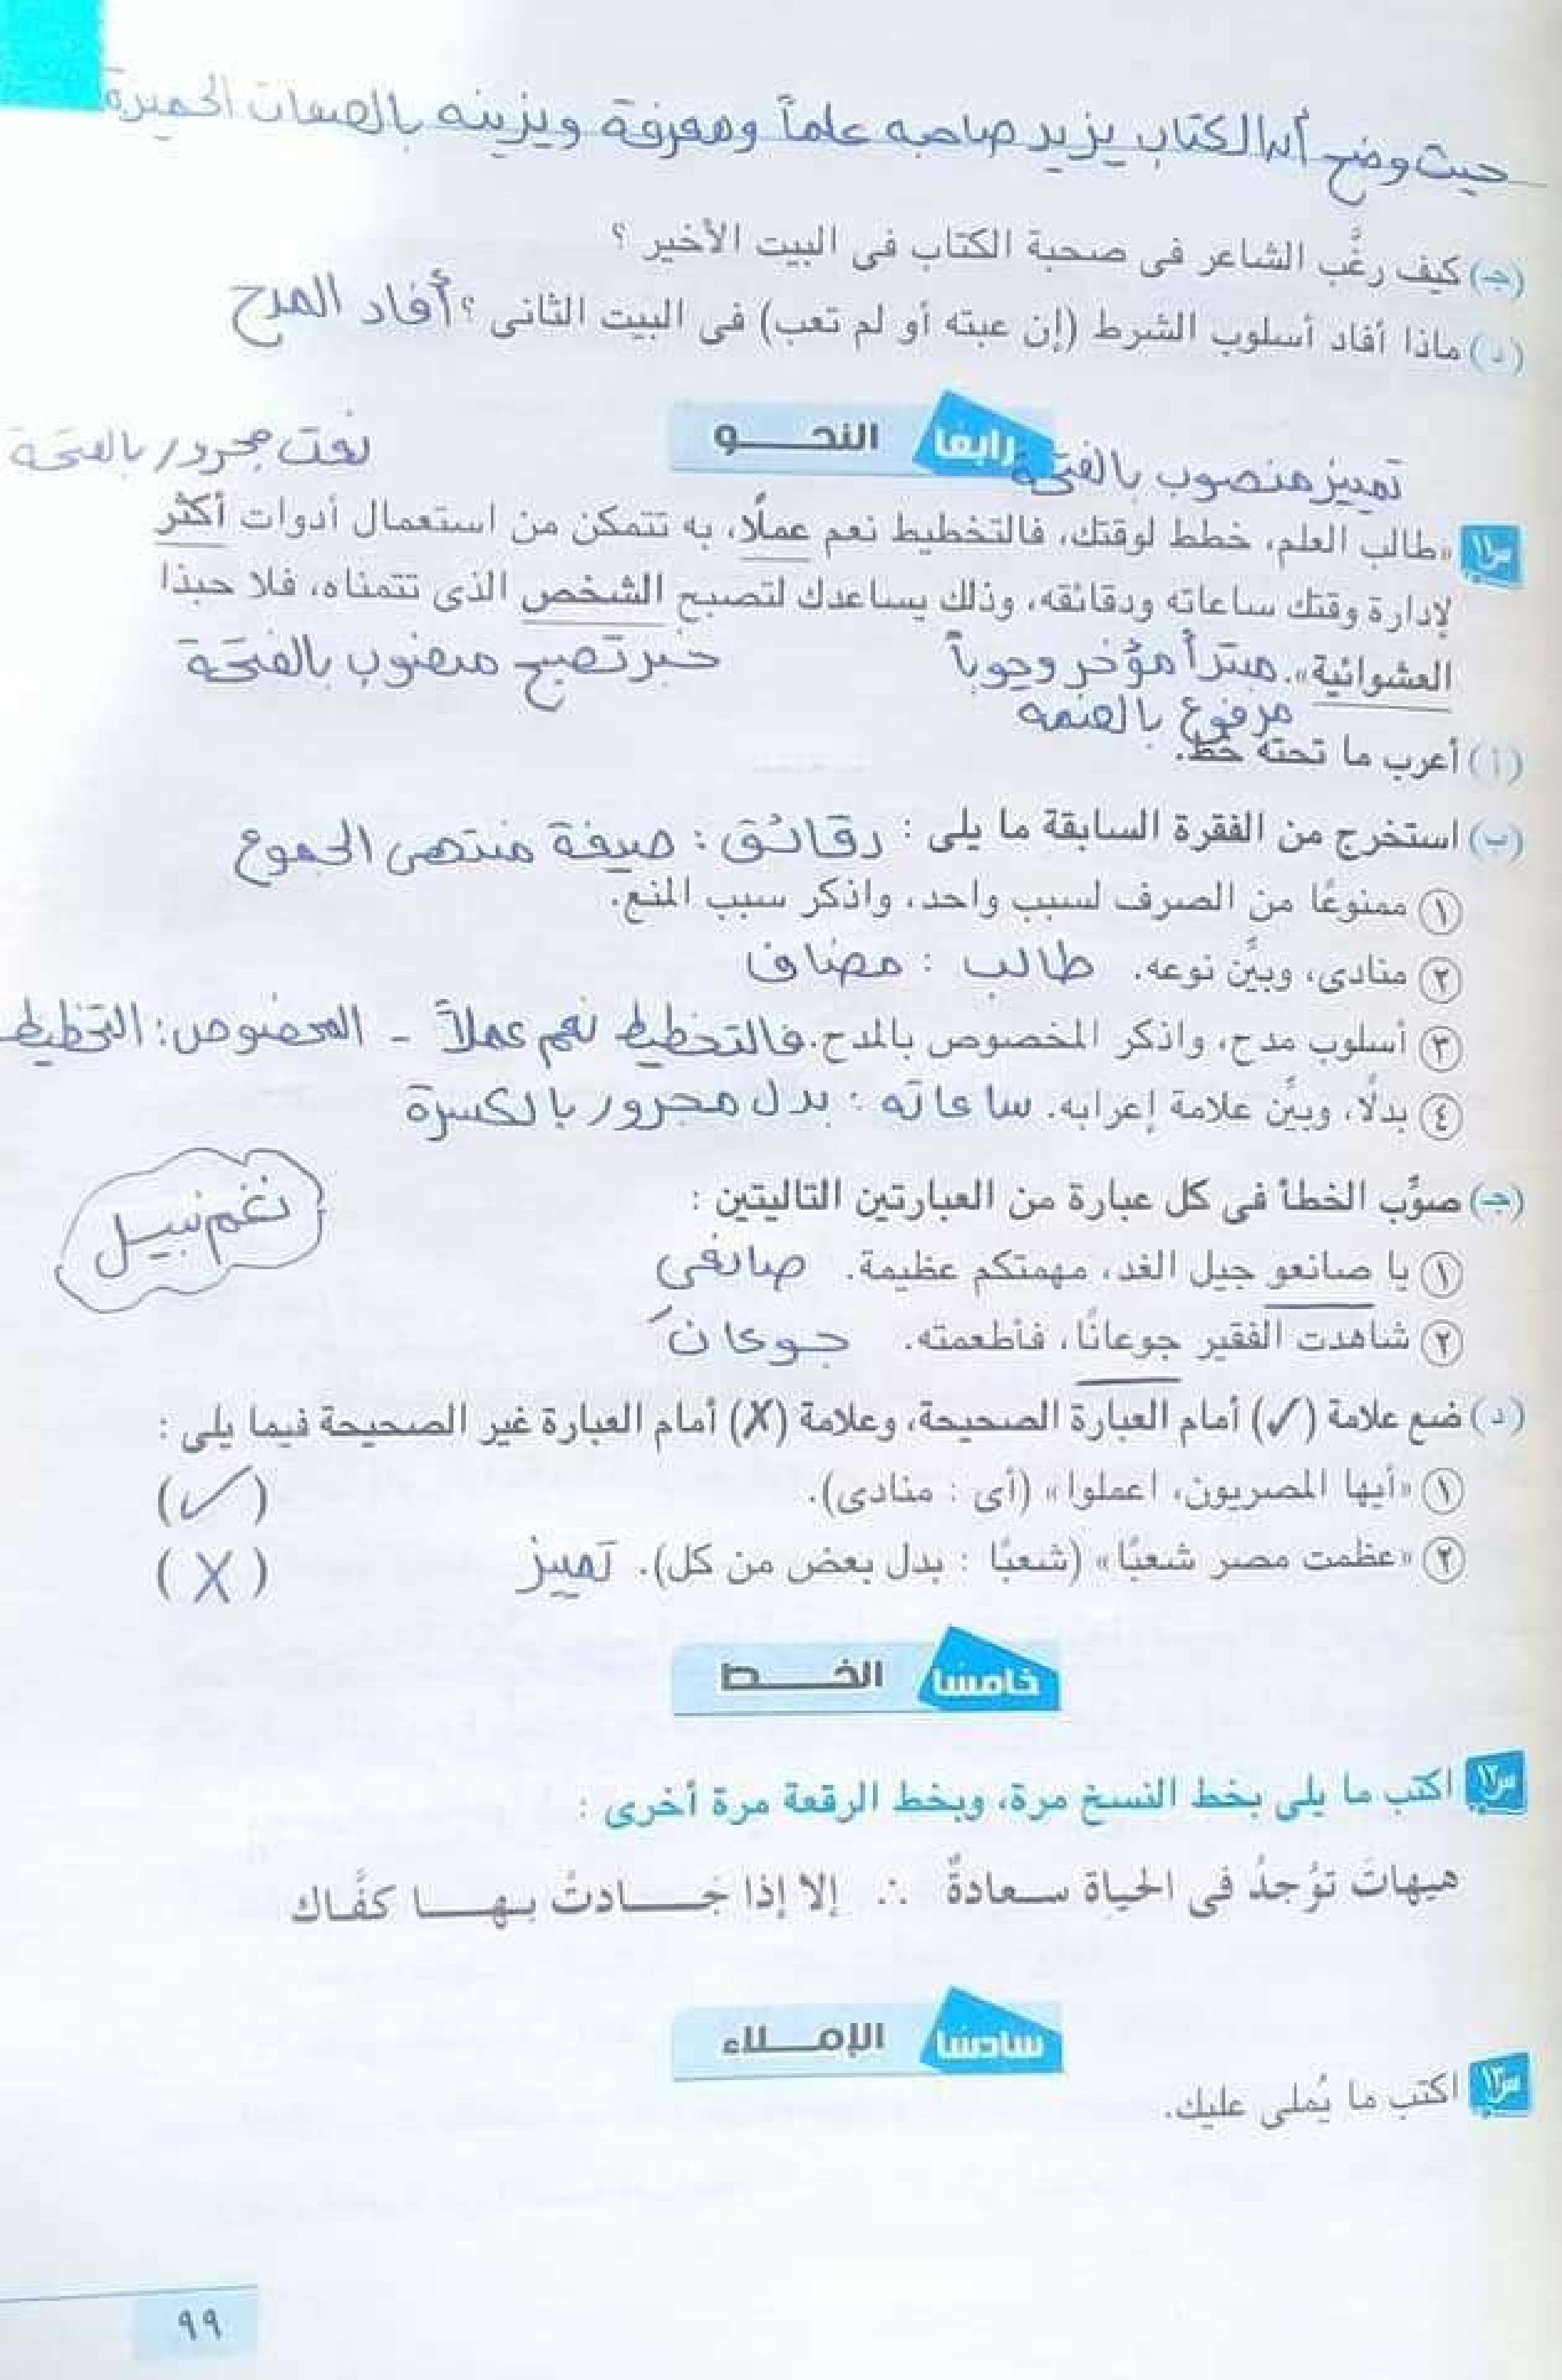 حيث وضح أن الكتاب يزيد صاحبه علماً ومعرفة ويزينه بالصفات الحميدة
(جـ) كيف رغَّب الشاعر فى صحبة الكتاب فى البيت الأخير ؟
(د) ماذا أفاد أسلوب الشرط (إن عبته أو لم تعب) فى البيت الثانى ؟ أفاد المدح
رابعًا النحـــو
تمييز منصوب بالفتحة
نعت مجرور بالفتحة
س١١ «طالب العلم، خطط لوقتك، فالتخطيط نعم عملًا، به تتمكن من استعمال أدوات أكثر
لإدارة وقتك ساعاته ودقائقه، وذلك يساعدك لتصبح الشخص الذى تتمناه، فلا حبذا
العشوائية». مبتدأ مؤخر وجوباً
خبر تصبح منصوب بالفتحة
مرفوع بالضمة
(أ) أعرب ما تحته خط.
(ب) استخرج من الفقرة السابقة ما يلى : دقائق : صيغة منتهى الجموع
١ ممنوعًا من الصرف لسبب واحد، واذكر سبب المنع.
٢ منادى، وبيِّن نوعه. طالب : مضاف
٣ أسلوب مدح، واذكر المخصوص بالمدح. فالتخطيط نعم عملاً - المخصوص: التخطيط
٤ بدلًا، وبيِّن علامة إعرابه. ساعاته : بدل مجرور بالكسرة
(جـ) صوِّب الخطأ فى كل عبارة من العبارتين التاليتين :
نغم نبيل
١ يا صانعو جيل الغد، مهمتكم عظيمة. صانعى
٢ شاهدت الفقير جوعانًا، فأطعمته. جوعانَ
(د) ضع علامة (✓) أمام العبارة الصحيحة، وعلامة (X) أمام العبارة غير الصحيحة فيما يلى :
١ «أيها المصريون، اعملوا» (أى : منادى). (✓)
٢ «عظمت مصر شعبًا» (شعبًا : بدل بعض من كل). تمييز (X)
خامسًا الخـــط
س١٢ اكتب ما يلى بخط النسخ مرة، وبخط الرقعة مرة أخرى :
هيهاتَ تُوجدُ فى الحياة سـعادةٌ ∴ إلا إذا جَـــادتْ بـهـــا كفَّـاك
سادسًا الإمـــلاء
س١٣ اكتب ما يُملى عليك.
٩٩